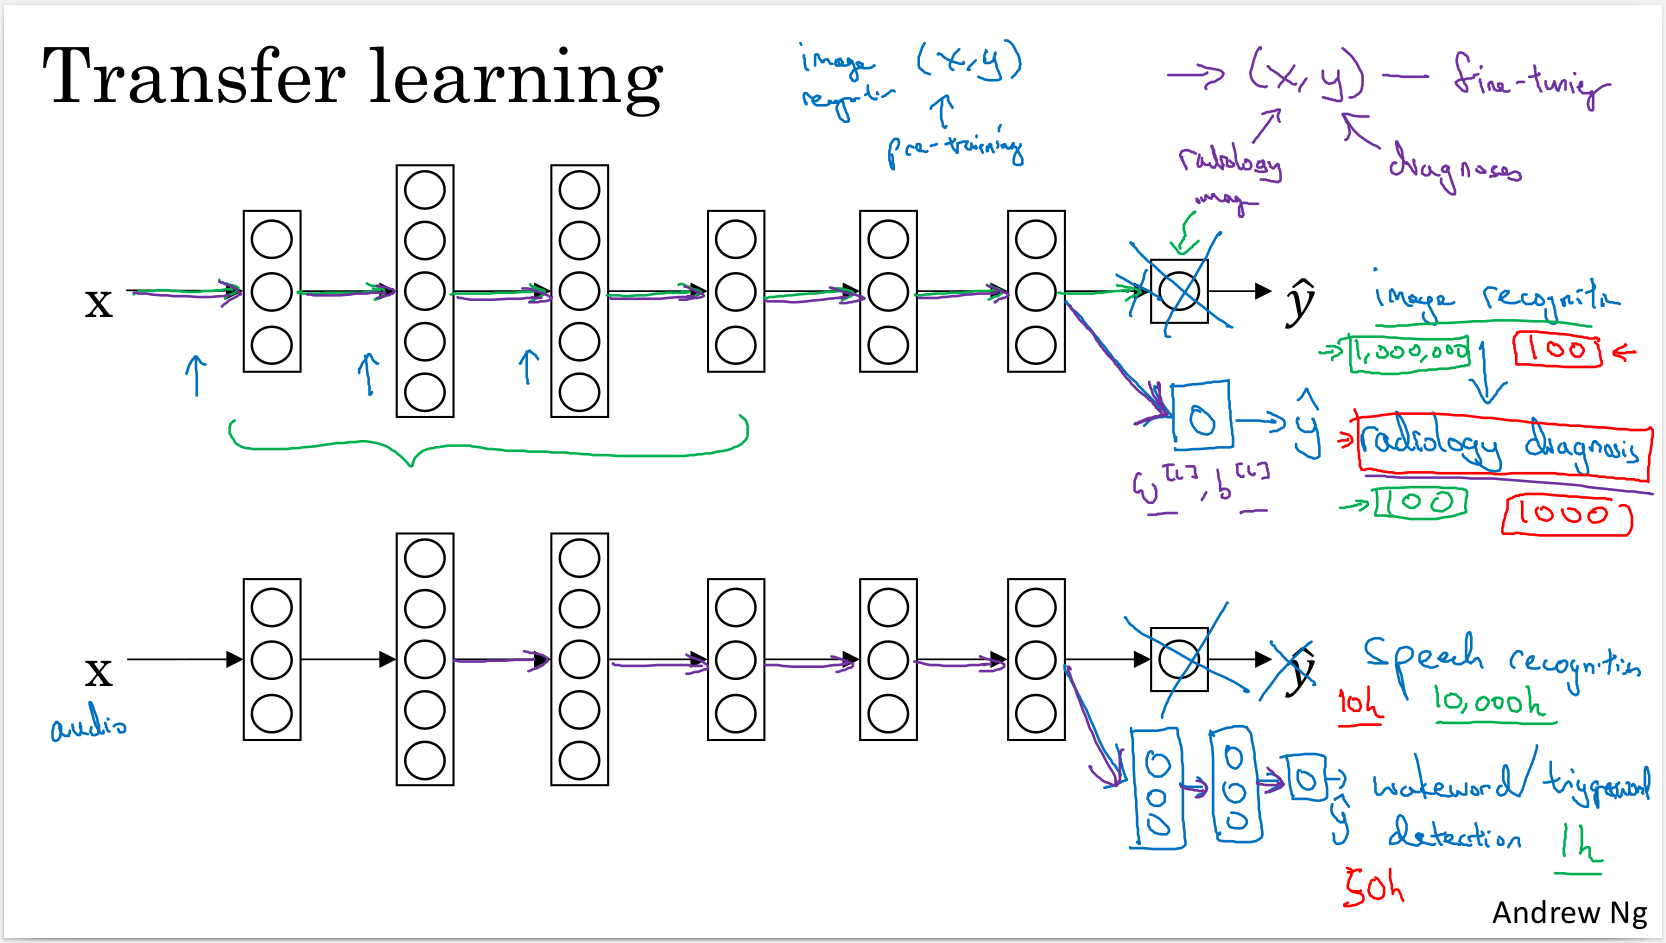 Transfer learning
image (x, y)
pre-training
→ (x, y) — fine-tuning
radiology
diagnoses
x
ŷ
image recognition
→ 1,000,000
100 ←
ŷ
→ radiology diagnosis
w[L], b[L]
→ 100
1000
x
audio
ŷ
Speech recognition
10h 10,000h
ŷ
wakeword/triggerword
detection 1h
50h
Andrew Ng